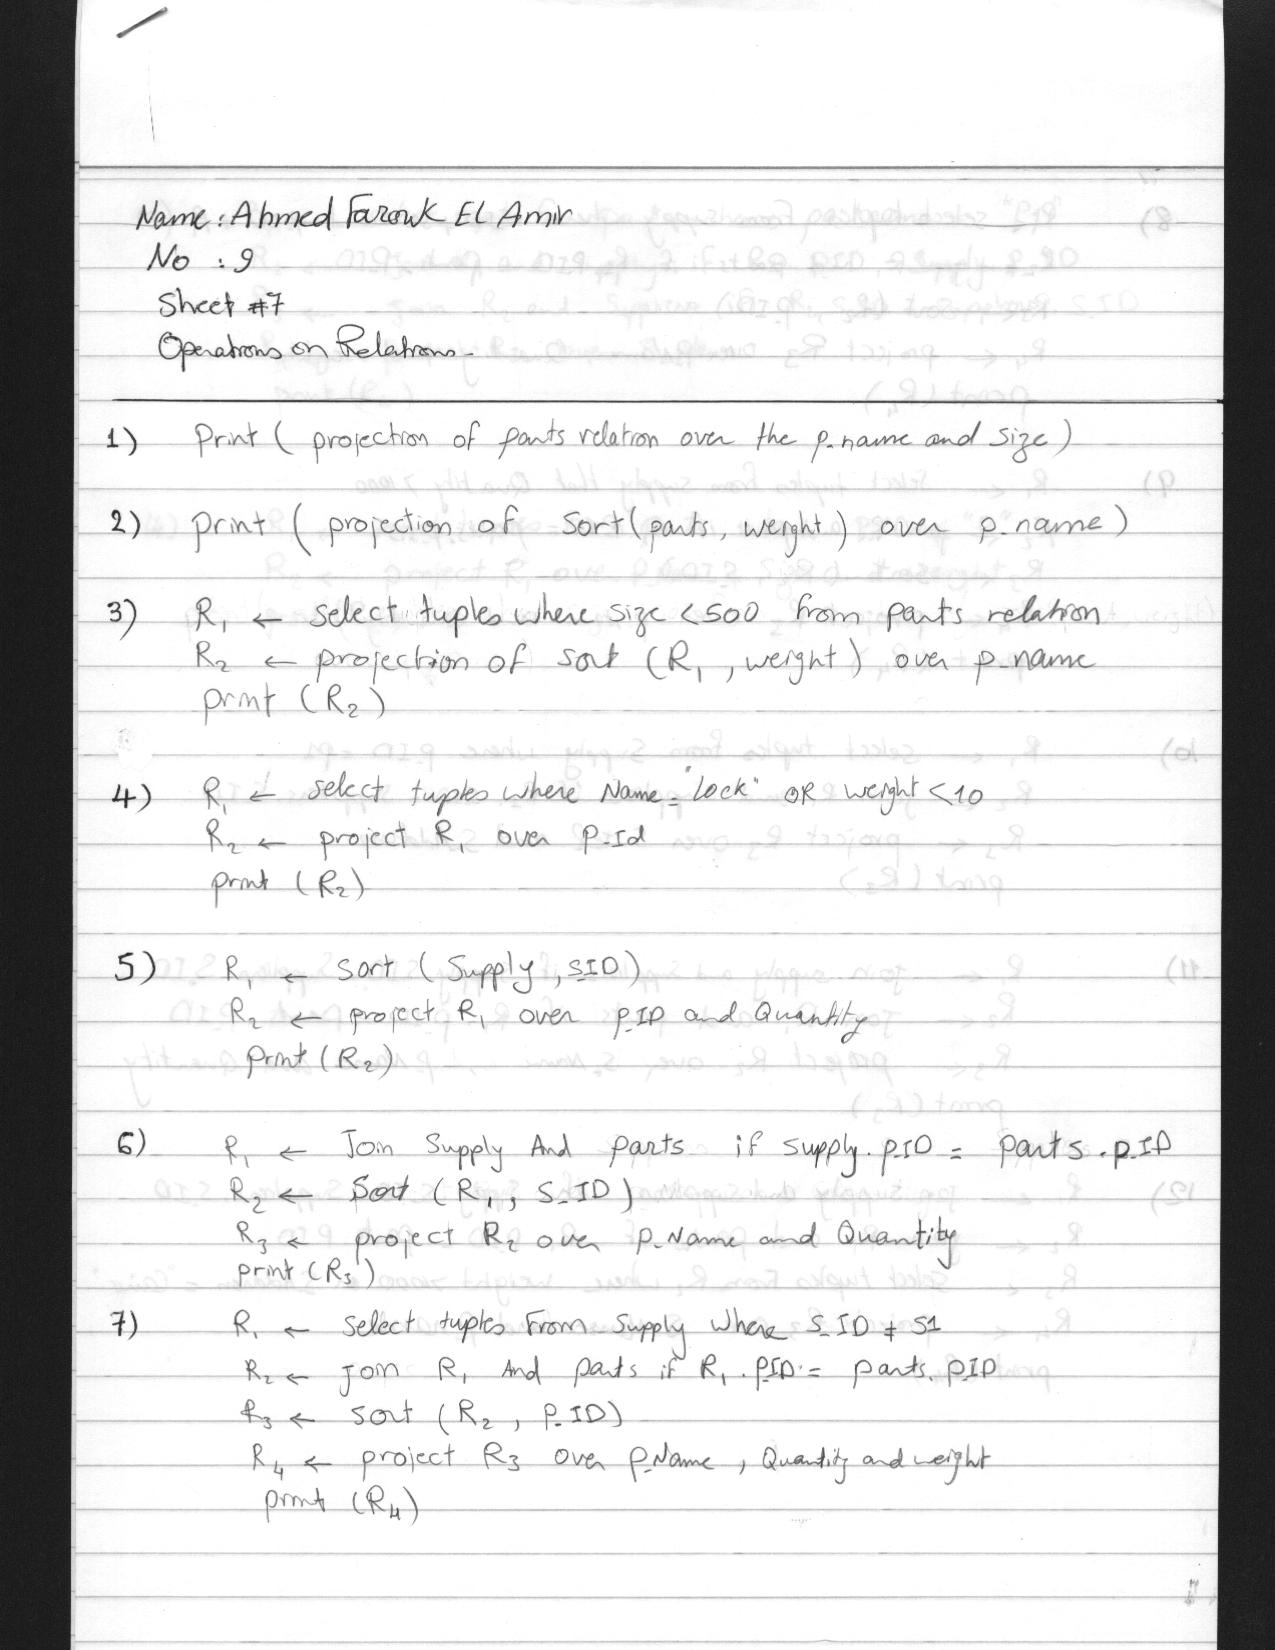 Name: Ahmed Farouk El Amir
No : 9
Sheet #7
Operations on Relations.
1) Print ( projection of parts relation over the p_name and size )
2) print ( projection of Sort(parts, weight) over p_name )
3) R1 ← select tuples where size <500 from parts relation
R2 ← projection of sort (R1, weight) over p_name
print (R2)
4) R1 ← select tuples where Name = "lock" OR weight <10
R2 ← project R1 over P_Id
print (R2)
5) R1 ← sort ( Supply, S_ID )
R2 ← project R1 over P_ID and Quantity
print (R2)
6) R1 ← Join Supply And parts if supply.P_ID = parts.P_ID
R2 ← Sort (R1, S_ID)
R3 ← project R2 over P_Name and Quantity
print (R3)
7) R1 ← select tuples From Supply Where S_ID ≠ S1
R2 ← join R1 And parts if R1.P_ID = parts.P_ID
R3 ← sort (R2, P_ID)
R4 ← project R3 over P_Name, Quantity and weight
print (R4)